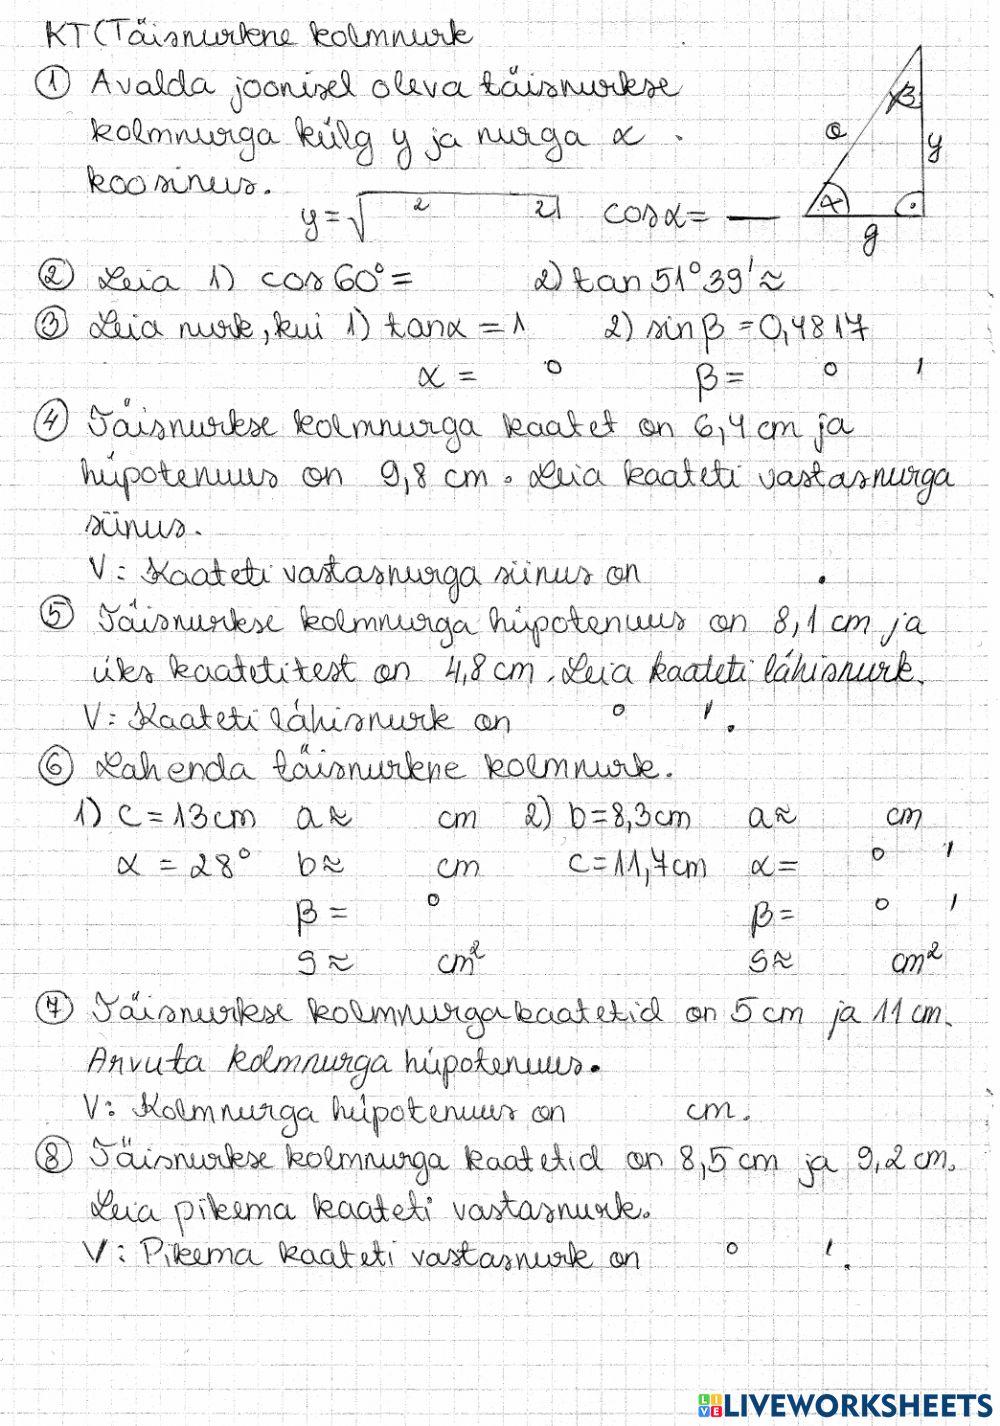 KT(Täisnurkne kolmnurk
① Avalda joonisel oleva täisnurkse
kolmnurga külg y ja nurga α
koosinus.
y=√ 2 2 cosα= —
α β y g
② Leia 1) cos60°= 2) tan51°39'≈
③ Leia nurk, kui 1) tanα=1 2) sinβ=0,4817
α= ° β= ° '
④ Täisnurkse kolmnurga kaatet on 6,4cm ja
hüpotenuus on 9,8 cm. Leia kaateti vastasnurga
siinus.
V: Kaateti vastasnurga siinus on .
⑤ Täisnurkse kolmnurga hüpotenuus on 8,1 cm ja
üks kaatetitest on 4,8cm. Leia kaateti lähisnurk.
V: Kaateti lähisnurk on ° '.
⑥ Lahenda täisnurkne kolmnurk.
1) c=13cm a≈ cm 2) b=8,3cm a≈ cm
α=28° b≈ cm c=11,7cm α= ° '
β= ° β= ° '
S≈ cm² S≈ cm²
⑦ Täisnurkse kolmnurga kaatetid on 5cm ja 11cm.
Arvuta kolmnurga hüpotenuus.
V: Kolmnurga hüpotenuus on cm.
⑧ Täisnurkse kolmnurga kaatetid on 8,5cm ja 9,2cm.
Leia pikema kaateti vastasnurk.
V: Pikema kaateti vastasnurk on ° '.
LIVEWORKSHEETS